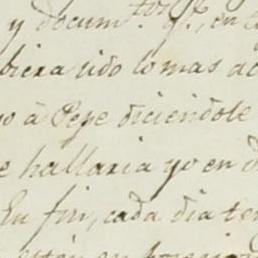 y docum.tos q.e, en
biera sido lo mas
à Pepe diciendole
hallaria yo en
En fin, cada dia